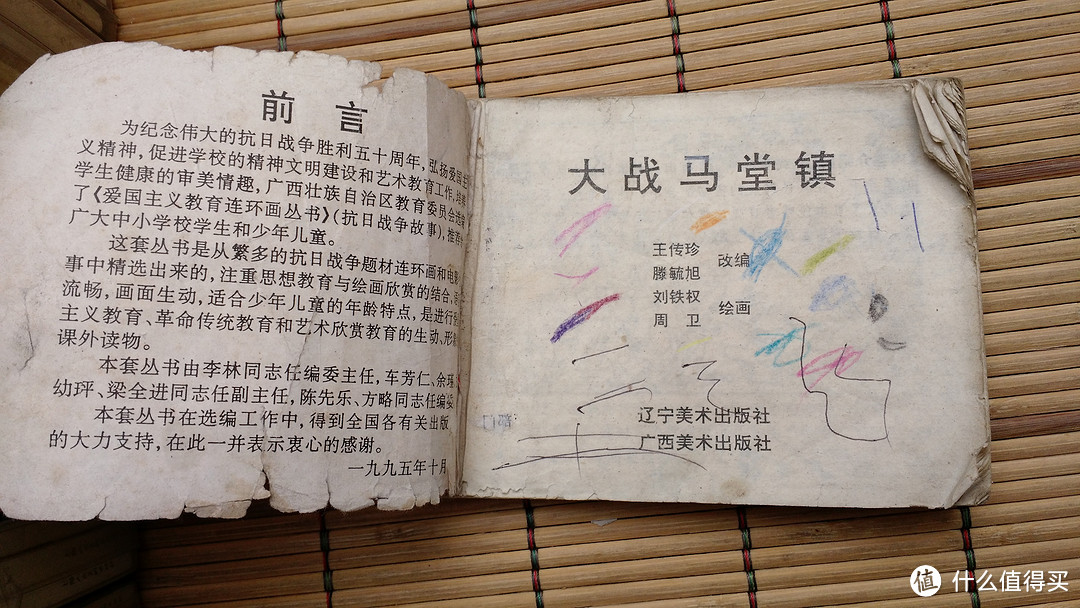 前言
为纪念伟大的抗日战争胜利五十周年,弘扬爱国主
义精神,促进学校的精神文明建设和艺术教育工作,培养
学生健康的审美情趣,广西壮族自治区教育委员会选编
了《爱国主义教育连环画丛书》(抗日战争故事),推荐给
广大中小学校学生和少年儿童。
这套丛书是从繁多的抗日战争题材连环画和电影
事中精选出来的,注重思想教育与绘画欣赏的结合,
流畅,画面生动,适合少年儿童的年龄特点,是进行
主义教育、革命传统教育和艺术欣赏教育的生动、形
课外读物。
本套丛书由李林同志任编委主任,车芳仁、余
幼玶、梁全进同志任副主任,陈先乐、方略同志任编委
本套丛书在选编工作中,得到全国各有关出版
的大力支持,在此一并表示衷心的感谢。
一九九五年十月
大战马堂镇
王传珍
滕毓旭
改编
刘铁权
周 卫
绘画
辽宁美术出版社
广西美术出版社
值 什么值得买